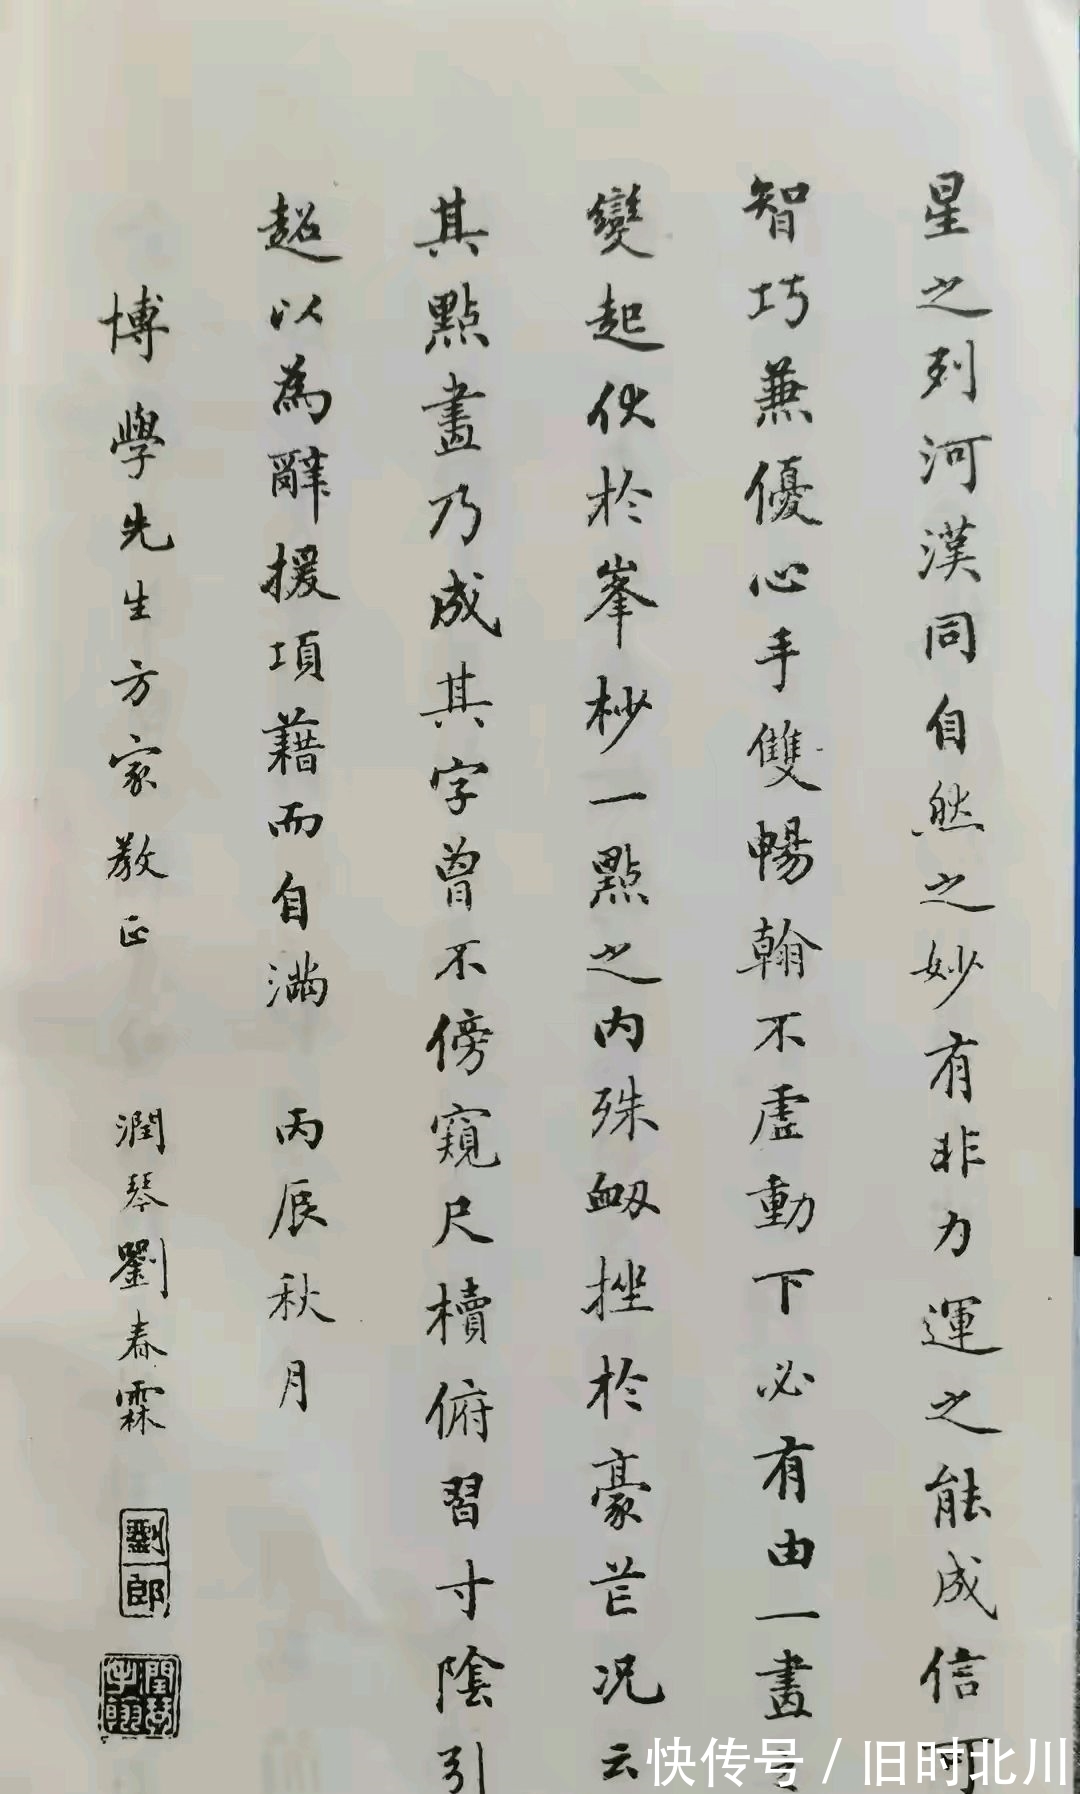 星之列河漢同自然之妙有非力運之能成信可
智巧兼優心手雙暢翰不虛動下必有由一畫
變起伏於峯杪一點之内殊衂挫於豪芒况云
其點畫乃成其字曾不傍窺尺櫝俯習寸陰引
超以為辭援項藉而自滿 丙辰秋月
博學先生方家教正 潤琴劉春霖
劉郎
快传号 / 旧时北川